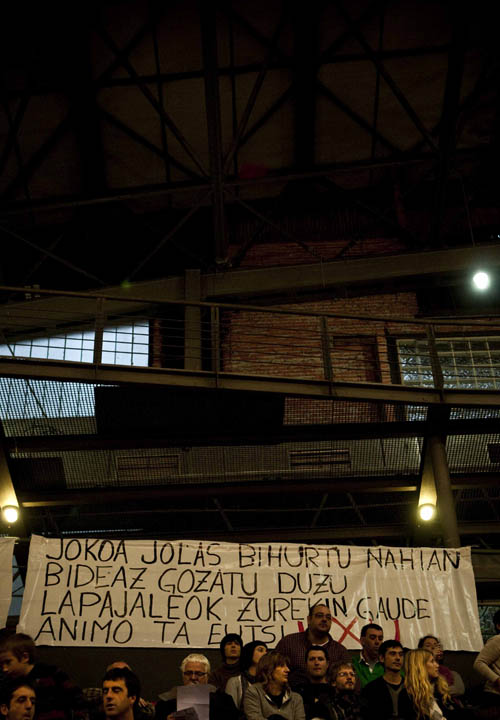 JOKOA JOLAS BIHURTU NAHIAN
BIDEAZ GOZATU DUZU
LAPAJALEOK ZUREKIN GAUDE
ANIMO TA EUTSI